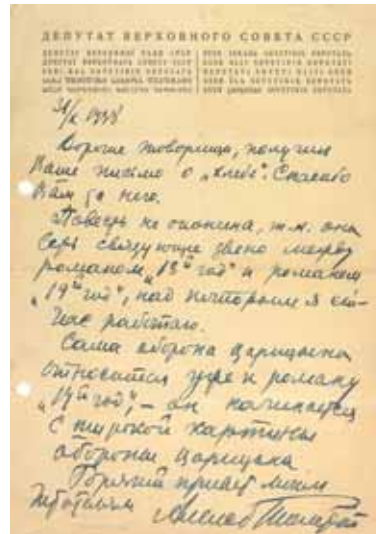 ДЕПУТАТ ВЕРХОВНОГО СОВЕТА СССР
31/X 1938
Дорогие товарищи, получил
Ваше письмо о „Хлебе“. Спасибо
Вам за него.
Повесть не окончена, т.к. она
есть связующее звено между
романом „18й год“ и романом
„19й год“, над которым я сей-
час работаю.
Сама оборона Царицына
относится уже к роману
„19й год“, – он начинается
с широкой картины
обороны Царицына
Горячий привет моим
читателям
Алексей Толстой